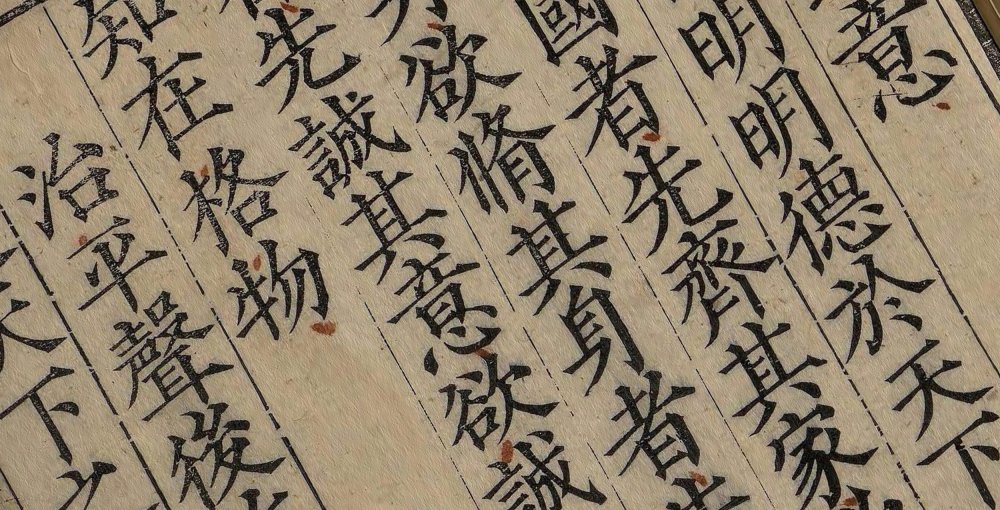 意
明明德於天下
國者先齊其家
欲脩其身者
先誠其意欲誠
知在格物
治平聲後
天下